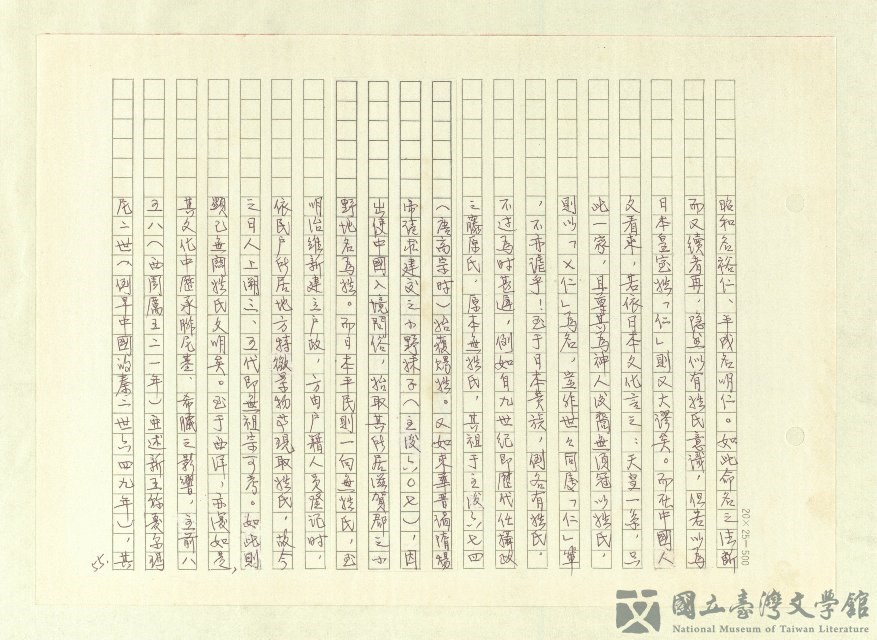 昭和名裕仁、平成名明仁。如此命名之法斷
而又續者再,隱然似有姓氏意識,但若以為
日本皇室姓「仁」則又大謬矣。而在中國人
文看來,若依日本文化言之:天皇一系,只
此一家,且尊其為神人後裔毋須冠以姓氏,
則以「×仁」為名,豈非世々同屬「仁」輩
,不亦謔乎!至于日本貴族,例各有姓氏,
不過為時甚遲,例如自九世紀即歷代任攝政
之藤原氏,原本無姓氏,其祖于主後六七四
(唐高宗時)始獲賜姓。又如來華晋謁隋煬
帝請求建交之小野妹子(主後六〇七),因
出使中國,入境問俗,始取其所居滋賀郡之小
野地名為姓。而日本平民則一向無姓氏,至
明治維新建立戶政,方由戶籍人員登記時,
依民戶所居地方特徵景物出現取姓氏,故今
之日人上溯三、五代即無祖宗可考。如此則
顯已無關姓氏文明矣。至于西洋,亦復如是,
其文化中歷承腓尼基、希臘之影響,主前八
五八(西周厲王二一年)亞述新王
尼二世(例早中國的秦二世六四九年),其
55.
20×25=500
國立臺灣文學館
National Museum of Taiwan Literature